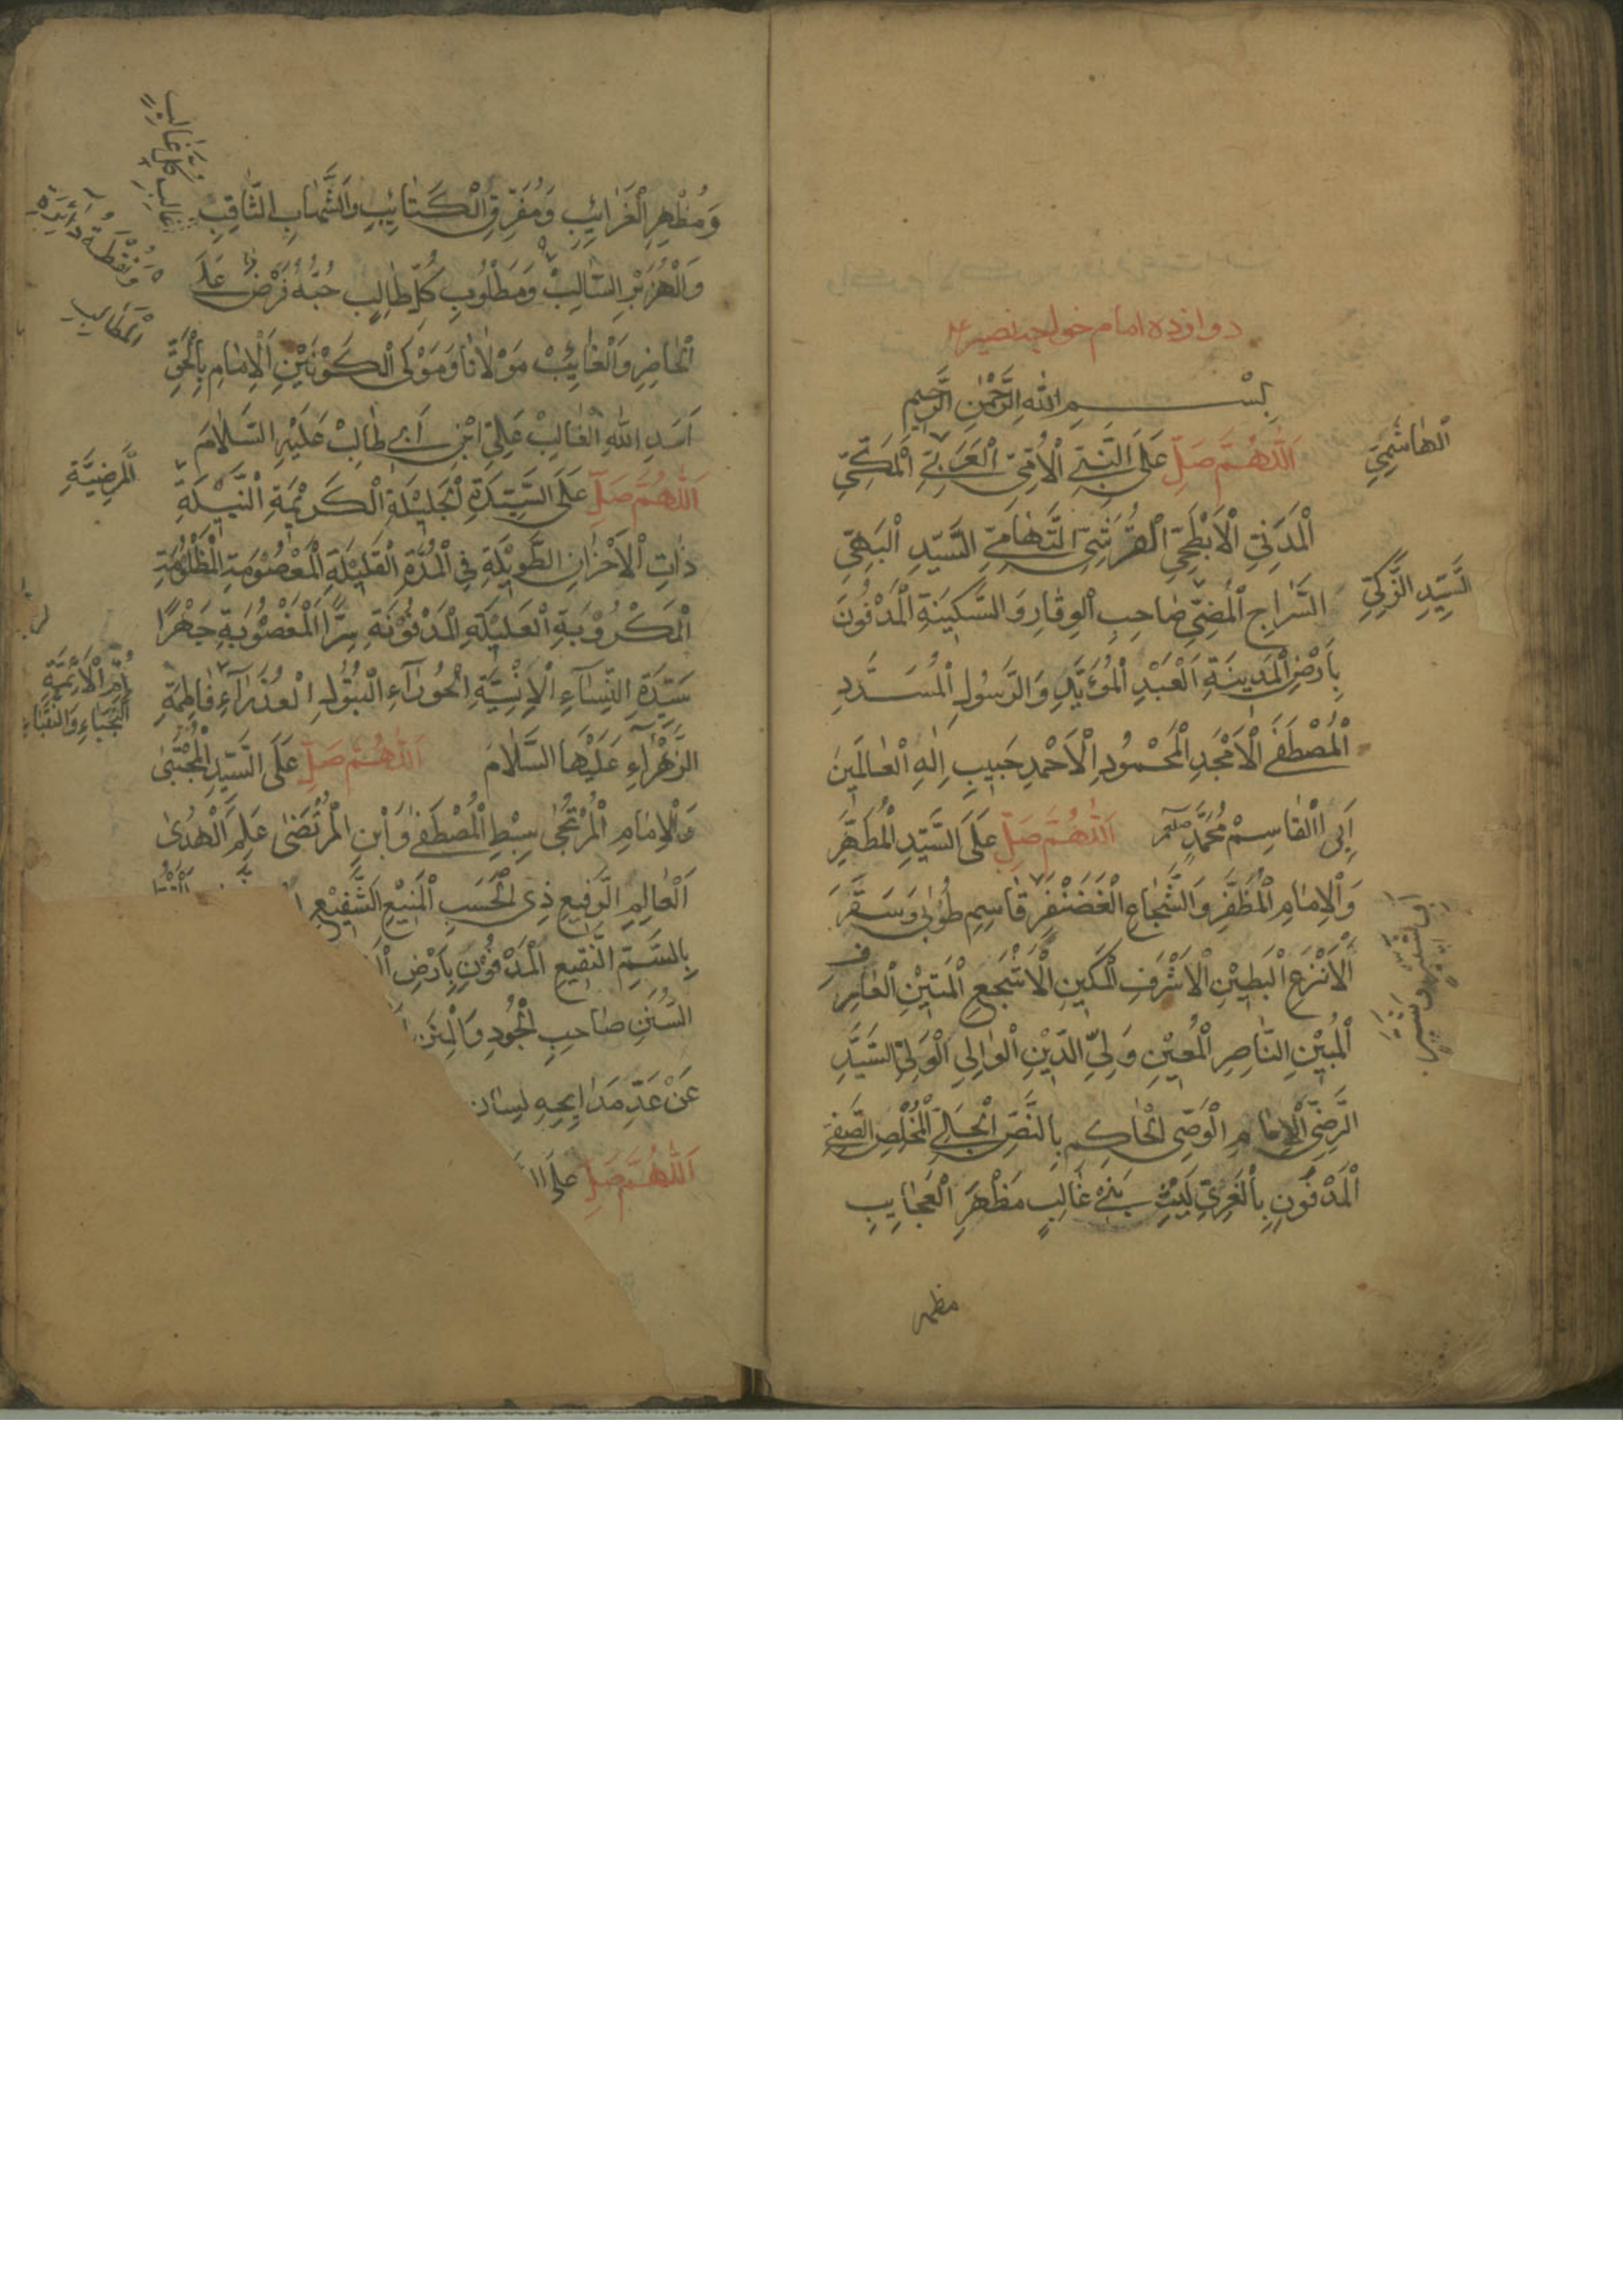 دوازده امام خواجه نصیر
بِسْمِ اللهِ الرَّحْمٰنِ الرَّحِيمِ
اَللّٰهُمَّ صَلِّ عَلَى النَّبِيِّ الْاُمِّيِّ الْعَرَبِيِّ الْمَكِّيِّ
اَلْهَاشِمِيِّ
الْمَدَنِيِّ الْاَبْطَحِيِّ الْقُرَشِيِّ التَّهَامِيِّ السَّيِّدِ الْبَهِيِّ
السِّرَاجِ الْمُضِيِّ صَاحِبِ الْوِقَارِ وَالسَّكِينَةِ الْمَدْفُونِ
السَّيِّدِ الزَّكِيِّ
بِاَرْضِ الْمَدِينَةِ الْعَبْدِ الْمُؤَيَّدِ وَالرَّسُولِ الْمُسَدَّدِ
الْمُصْطَفَى الْاَمْجَدِ الْمَحْمُودِ الْاَحْمَدِ حَبِيبِ اِلٰهِ الْعَالَمِينَ
اَبِى الْقَاسِمِ مُحَمَّدٍ صلعم اَللّٰهُمَّ صَلِّ عَلَى السَّيِّدِ الْمُطَهَّرِ
وَالْاِمَامِ الْمُظَفَّرِ وَالشُّجَاعِ الْغَضَنْفَرِ قَاسِمِ طُوبٰى وَسَقَرَ
اَبِى شُبَّرَ وَشَبِيرٍ
الْاَنْزَعِ الْبَطِينِ الْاَشْرَفِ الْمَكِينِ الْاَشْجَعِ الْمَتِينِ الْعَارِفِ
الْمُبِينِ النَّاصِرِ الْمُعِينِ وَلِيِّ الدِّينِ الْوَالِي الْوَلِيِّ السَّيِّدِ
الرَّضِيِّ الْاِمَامِ الْوَصِيِّ الْحَاكِمِ بِالنَّصِّ الْجَلِيِّ الْمُخْلِصِ الصَّفِيِّ
الْمَدْفُونِ بِالْغَرِيِّ لَيْثِ بَنِي غَالِبٍ مَظْهَرِ الْعَجَايِبِ
وَمُظْهِرِ الْغَرَائِبِ وَمُفَرِّقِ الْكَتَائِبِ وَالشَّهَابِ الثَّاقِبِ
غَالِبِ كُلِّ غَالِبٍ
وَالْهِزَبْرِ السَّالِبِ وَمَطْلُوبِ كُلِّ طَالِبٍ حُبُّهُ فَرْضٌ عَلَى
وَنُقْطَةِ دَائِرَةِ
الْمَطَالِبِ
الْحَاضِرِ وَالْغَائِبِ مَوْلَانَا وَمَوْلَى الْكَوْنَيْنِ الْاِمَامِ بِالْحَقِّ
اَسَدِ اللهِ الْغَالِبِ عَلِيِّ ابْنِ اَبِي طَالِبْ عَلَيْهِ السَّلَامَ
اَللّٰهُمَّ صَلِّ عَلَى السَّيِّدَةِ الْجَلِيلَةِ الْكَرِيْمَةِ النَّبِيلَةِ
الْمَرْضِيَّةِ
ذَاتِ الْاَحْزَانِ الطَّوِيْلَةِ فِي الْمُدَّةِ الْقَلِيْلَةِ الْمَعْصُوْمَةِ الْمَظْلُوْمَةِ
الْمَكْرُوْبَةِ الْعَلِيْلَةِ الْمَدْفُوْنَةِ سِرًّا الْمَغْصُوْبَةِ جَهْرًا
سَيِّدَةِ النِّسَاءِ الْاِنْسِيَّةِ الْحَوْرَاءِ الْبَتُوْلِ الْعَذْرَاءِ فَاطِمَةَ
اُمِّ الْاَئِمَّةِ
النُّجَبَاءِ وَالنُّقَبَاءِ
الزَّهْرَاءِ عَلَيْهَا السَّلَامَ اَللّٰهُمَّ صَلِّ عَلَى السَّيِّدِ الْمُجْتَبٰى
وَالْاِمَامِ الْمُرْتَجٰى سِبْطِ الْمُصْطَفٰى وَابْنِ الْمُرْتَضٰى عَلَمِ الْهُدٰى
الْعَالِمِ الرَّفِيعِ ذِى الْحَسَبِ الْمَنِيْعِ الشَّفِيْعِ
بِالسَّمِّ النَّقِيعِ الْمَدْفُوْنِ بِاَرْضِ
السُّنَنِ صَاحِبِ الْجُودِ وَالْمِنَنِ
عَنْ عَدِّ مَدَايِحِهِ لِسَان
اَللّٰهُمَّ صَلِّ عَلَى
مظهر